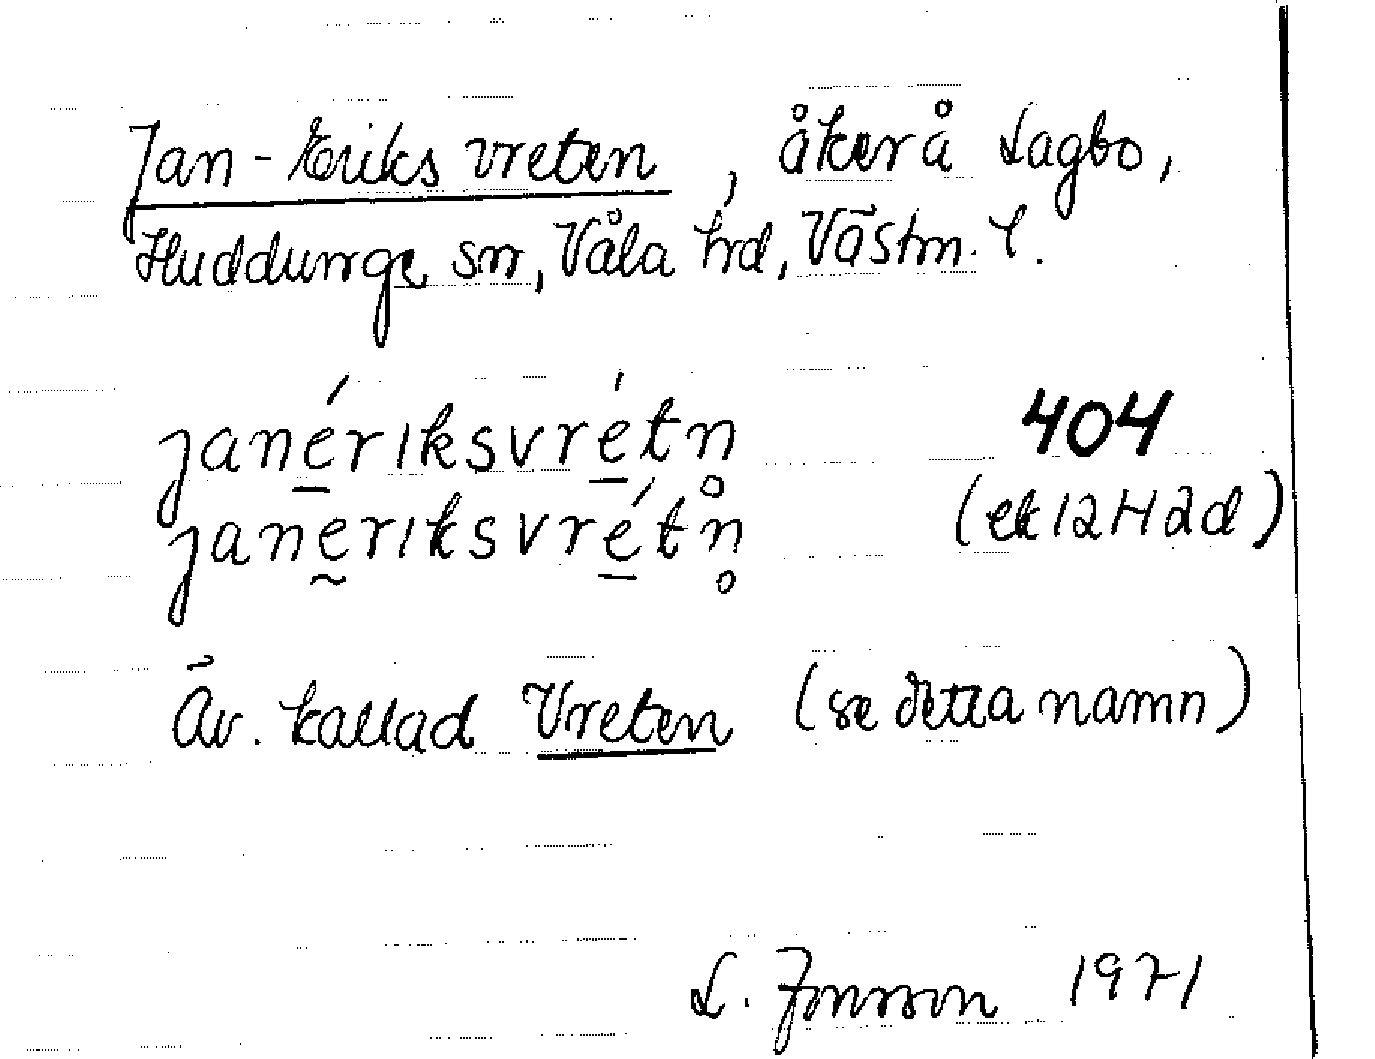 Jan-Eriksvreten, åker å Lagbo,
Huddunge sn, Våla hd, Västm. l.
jané̱riksvré̱tn̥ 404
janḛriksvré̱tn̥ (ek 12H2d)
Äv. kallad Vreten (se detta namn)
L. Jonsson 1971